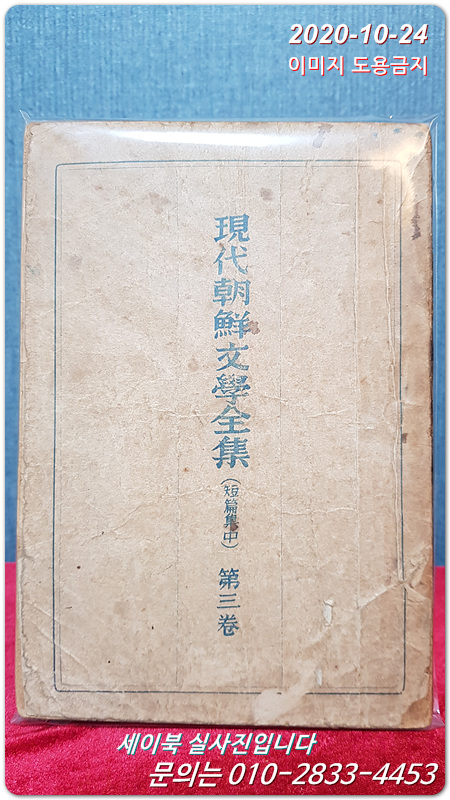 2020-10-24
이미지 도용금지
現代朝鮮文學全集
(短篇集中)
第三卷
세이북 실사진입니다
문의는 010-2833-4453